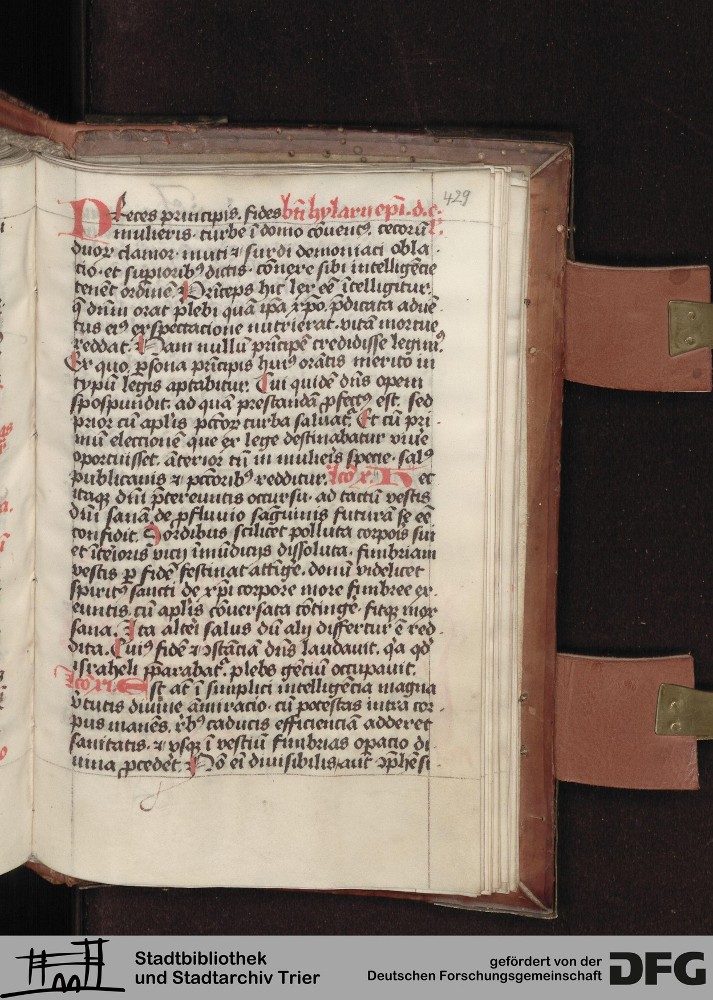 429
Preces principis. fides bt̄i hylarij ep̄i. d. e.
mulieris. turbe ī domo cōuent⁹. cecorū l'.
duor clamor. muti ⁊ surdi demoniaci obla
tio. et suꝑiorib⁹ dictis. cōuenire sibi intelligēcie
tenēt ordinē. Princeps hic lex eē ītelligitur.
q̄ dn̄m orat plebi quā ipā xp̄o. p̄dicata aduē
tus ei⁹ exspectacione nutrierat. vitā mortue
reddat. Nam nullū prīcipē credidisse legim⁹.
Ex quo ꝑsona prīcipis hui⁹ orātis merito in
typū legis aptabitur. Cui quidē dn̄s opem
spospundit. ad quā prestandā ꝓfect⁹ est. sed
prior cū apl̄is pctōꝝ turba saluat᷑. Et cū pri
mū eleccionē que ex lege destinabatur viue
oportuisset. āterior tn̄ in mulieris specie. sal⁹
publicanis ⁊ pctōrib⁹ redditur. Lcō x. Hec
itaqꝫ dn̄i p̄tereuntis occursu. ad tactū vestis
dn̄i sanā de ꝓfluuio sanguinis futurā se eē
confidit. Sordibus scilicet polluta corpois sui
et īteioris vicij īmūdicijs dissoluta. fimbriam
vestis ꝑ fidē festinat attīge. donū videlicet
spirit⁹ sancti de xp̄i corpore more fimbree ex
euntis. cū apl̄is cōuersata cōtinge. fitqꝫ mox
sana. Ita alteī salus dū alij differtur ē red
dita. Cui⁹ fidē ⁊ ꝯstāciā dn̄s laudauit. q̄a qd̄
israheli p̄parabat᷑. plebs gēciū occupauit.
Lcō xi. Est at̄ ī simplici intelligēcia magna
v̄tutis diuine āmiracio. cū potestas intra cor
pus manēs. reb⁹ caducis efficienciā adderet
sanitatis. ⁊ vsqꝫ ī vestiū fimbrias opacio di
uina ꝓcedēt. Nō ei diuisibilis aut ꝯp̄hēsi
Stadtbibliothek
und Stadtarchiv Trier
gefördert von der
Deutschen Forschungsgemeinschaft
DFG